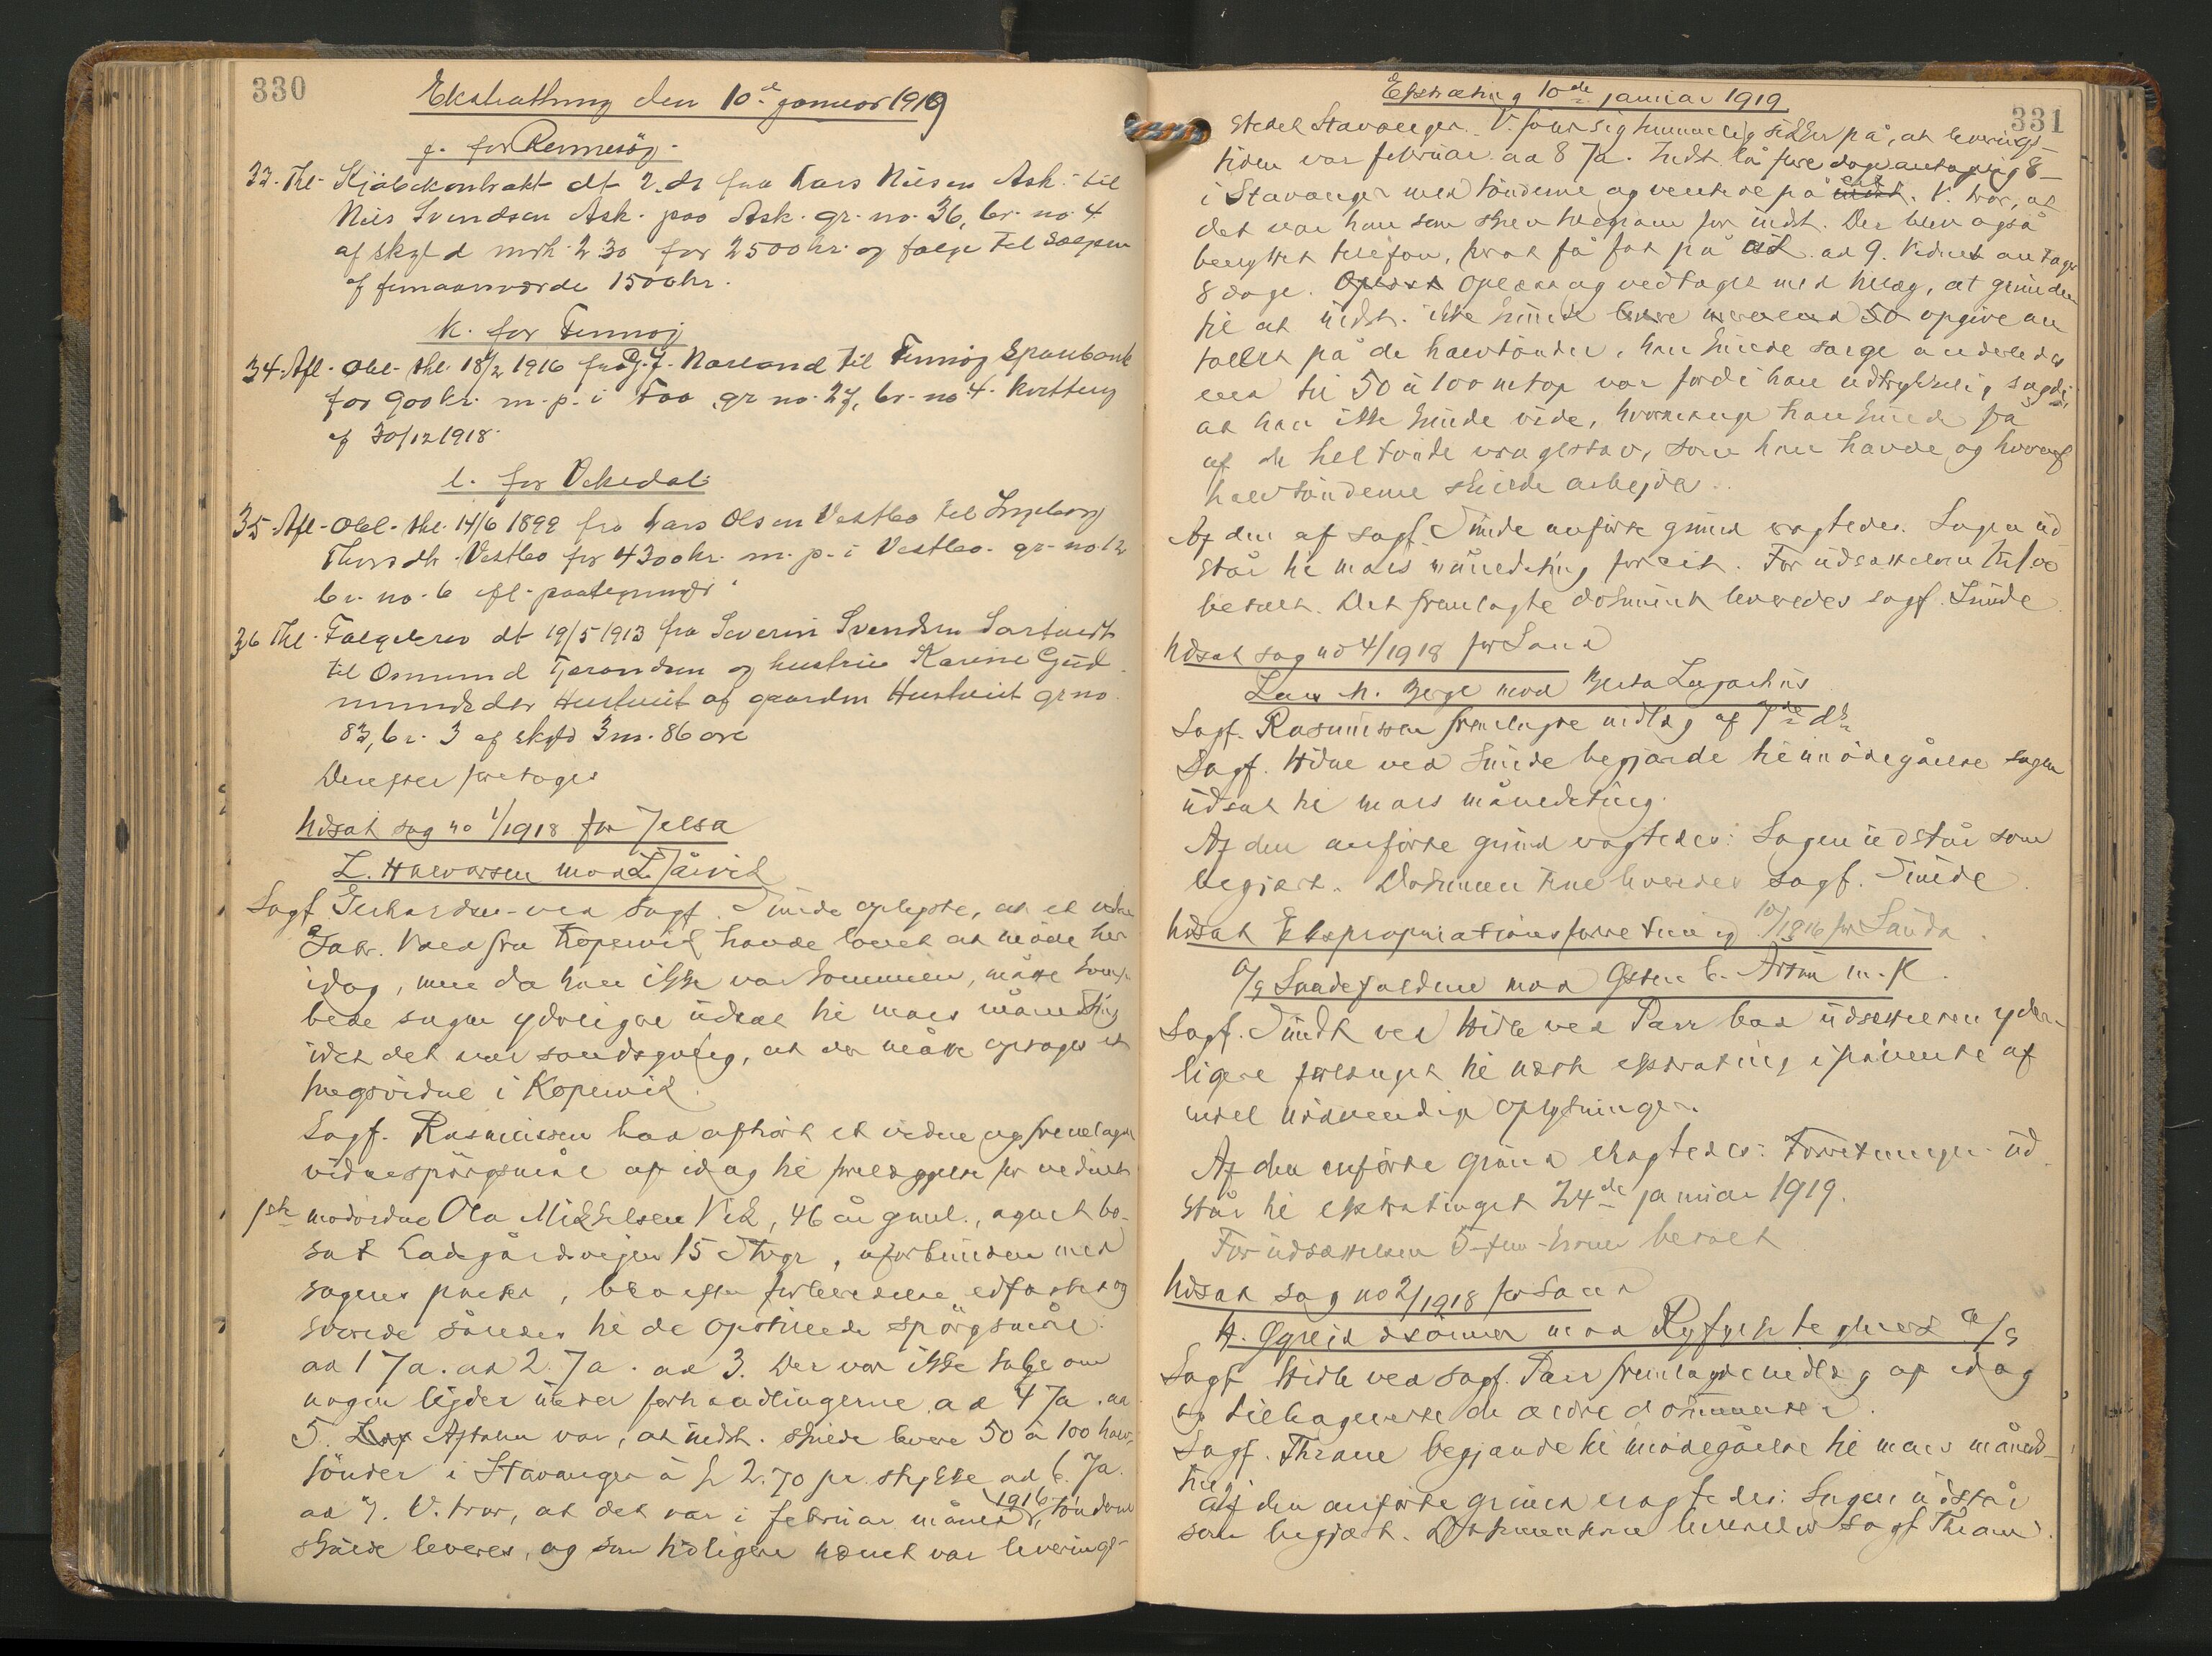 330
Ekstrathing den 10de januar 1919
j. for Rennesöy.
33. Thl. Kjöbekontrakt dt 2. ds fra Lars Nilsen Ask til
Nils Svendsen Ask paa Ask gr. no. 36, br. no 4
af skyld mrk 2.30 for 2500 kr. og følge til sælgeren
af femaarsværdi 1500 kr.
k. for Finnöj
34. Afl. Obl. thl. 18/2 1916 fra J. Narland til Finnöj Sparebank
for 900 kr. m. p. i gr. no. 27, br. no 4. kvittering
af 30/12 1918.
l. for Vikedal
35. Afl. Obl. thl. 14/6 1892 fra Lars Olsen Vestbø til Ingeborg
Thorsdtr. Vestbø for 4300 kr. m. p. i Vestbø gr. no 12
br. no. 6 efl. paategning
36 Thl. Følgebrev dt 19/5 1913 fra Severin Svendsen
til Osmund og hustru Karine Gud
mundsdtr Hustveit af gaarden Hustveit gr no.
83, br. 3 af skyld 3 m. 86 øre
Derefter foretoges
Udsat sag no 1/1918 for Jelsa
L. Halvorsen mod L. Jåsvik
Sagf. Gerhardsen ved sagf. Sunde oplyste, at et vidne
Jakr. fra Kopervik havde lovet at möde her
idag, men da han ikke var kommen, måtte komp.
bede sagen yderligere udsat til mars månedsting
idet det var sandsynlig, at der måtte optages et
tingsvidne i Kopervik.
Sagf. Rasmussen bad afhört et vidne og fremlagde
vidnespörgsmål af idag til foreläggelse for vidnet
1ste modvidne Ola Mikkelsen Vik, 46 år gml., agent bo-
sat Ladegårdsvejen 15 Stvgr, uforbunden med
sagens parter, blev efter forberedelse edfæstet og
svarede således til de opstillede spörgsmål:
ad 1 Ja. ad 2. Ja. ad 3. Der var ikke tale om
nogen under forhandlingerne. ad 4 Ja. ad
5. Aftalen var, at indst. skulde levere 50 à 100 halv-
tönder i Stavanger à kr 2.70 pr. stykke ad 6. Ja.
ad 7. V. tror, at det var i februar måned 1916, tönderne
skulde leveres, og som tidligere nævnt var leverings-
331
Ekstrating 10de januar 1919
stedet Stavanger. V. föler sig temmelig sikker på, at leverings-
tiden var februar. ad 8 Ja. Indst. lå flere dage antagelig 8
i Stavanger med tönderne og ventede på V. tror, at
det var han som skrev telegram for indst. Der blev også
benyttet telefon, for at få fat på ad 9. Vidnet antager
8 dage. Oplæst og vedtaget med tillæg, at grunden
til at indst. ikke kunde opgive an
tallet på de halvtönder, han kunde sælge anderledes
end til 50 à 100 netop var fordi han udtrykkelig sagde,
at han ikke kunde vide, hvormange han kunde få
af de heltönde vragstav, som han havde og hvoraf
halvtönderne skulde arbejdes.
Af den af sagf. Sunde anförte grund vagtedes: Sagen ud
står til mars månedsting forat. For udsættelsen kr 1.00
betalt. Det fremlagte dokument leveredes sagf. Sunde
Udsat sag no 4/1918 for Sand
Lars N. Berge mod Berta
Sagf. Rasmussen fremlagde indlæg af 7de ds
Sagf. Hidle ved Sunde begjærde til imödegåelse sagen
udsat til mars månedsting.
Af den anförte grund vagtedes: Sagen udstår som
begjært. Dokumenterne leveredes sagf. Sunde
Udsat Ekspropriationsforretning 10/1916 for Sauda
A/S Saudefaldene mod Østen B. Årtun m. fl.
Sagf. Sundt ved Hidle ved Parr bad udsættelsen yder-
ligere forlænget til næste ekstrating i påvente af
endel nödvendige oplysninger.
Af den anförte grund eragtedes: Forretningen ud
står til ekstratinget 24de januar 1919.
For udsættelsen 5 - fem - kroner betalt
Udsat sag no 2/1918 for Sand
H. mod Ryfylke teglverk A/S
Sagf. Hidle ved sagf. Parr fremlagde indlæg af idag
og tilbageleverte de ældre dokumenter.
Sagf. Thrane begjærde til imödegåelse til mars måneds-
ting
Af den anförte grund eragtedes: Sagen udstår
som begjært. Dokumenterne leveredes sagf. Thrane.